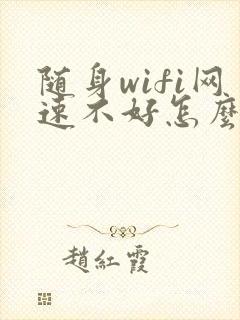 随身wifi网
速不好怎麽
趙紅霞